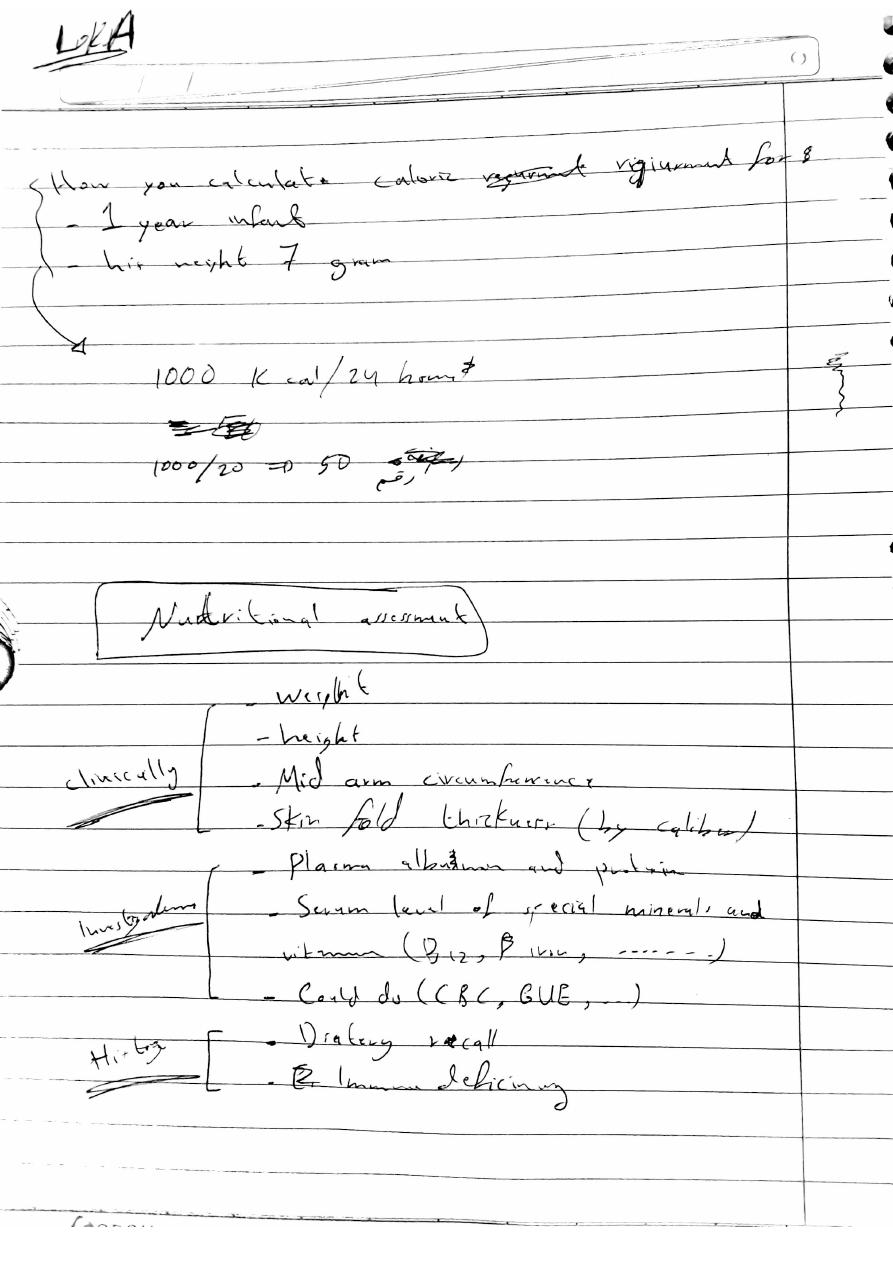 LOKA
How you calculate caloric rigiurment for :
- 1 year infant
- his weight 7 gram
1000 K cal/24 hours
1000/20 => 50
رقم
Nutritional assessment
- weight
- height
clinically
- Mid arm circumfrence
- Skin fold thickness (by caliber)
- Plasma albumin and protein
Investigations
- Serum level of special minerals and
vitamin (B12, iron, -------)
- Could do (CBC, GUE, ...)
History
- Dietary recall
- Immune deficiency